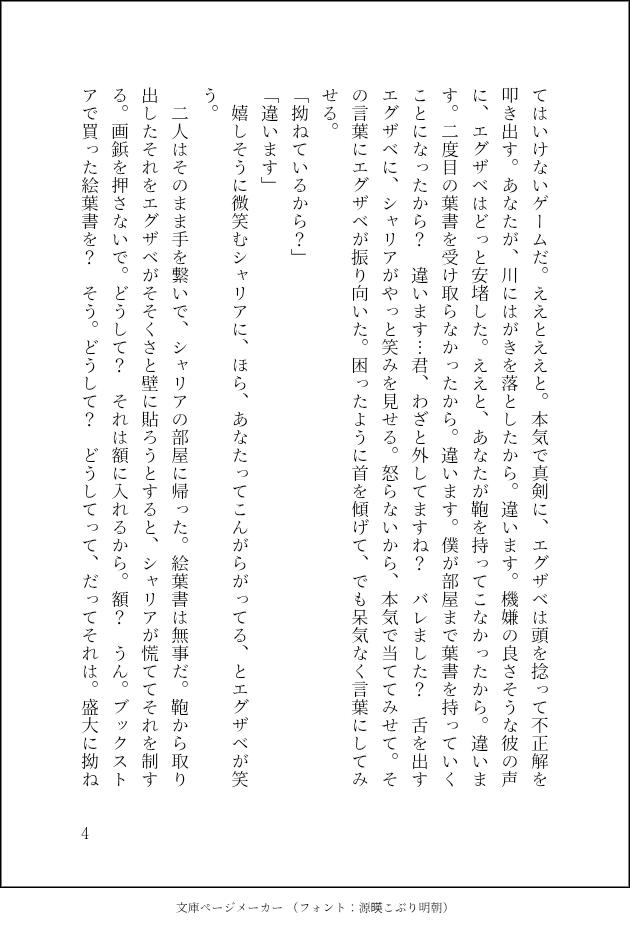 てはいけないゲームだ。ええとええと。本気で真剣に、エグザベは頭を捻って不正解を
叩き出す。あなたが、川にはがきを落としたから。違います。機嫌の良さそうな彼の声
に、エグザベはどっと安堵した。ええと、あなたが鞄を持ってこなかったから。違いま
す。二度目の葉書を受け取らなかったから。違います。僕が部屋まで葉書を持っていく
ことになったから？　違います…君、わざと外してますね？　バレました？　舌を出す
エグザベに、シャリアがやっと笑みを見せる。怒らないから、本気で当ててみせて。そ
の言葉にエグザベが振り向いた。困ったように首を傾げて、でも呆気なく言葉にしてみ
せる。
「拗ねているから？」
「違います」
　嬉しそうに微笑むシャリアに、ほら、あなたってこんがらがってる、とエグザベが笑
う。
　二人はそのまま手を繋いで、シャリアの部屋に帰った。絵葉書は無事だ。鞄から取り
出したそれをエグザベがそそくさと壁に貼ろうとすると、シャリアが慌ててそれを制す
る。画鋲を押さないで。どうして？　それは額に入れるから。額？　うん。ブックスト
アで買った絵葉書を？　そう。どうして？　どうしてって、だってそれは。盛大に拗ね
4
文庫ページメーカー （フォント：源暎こぶり明朝）